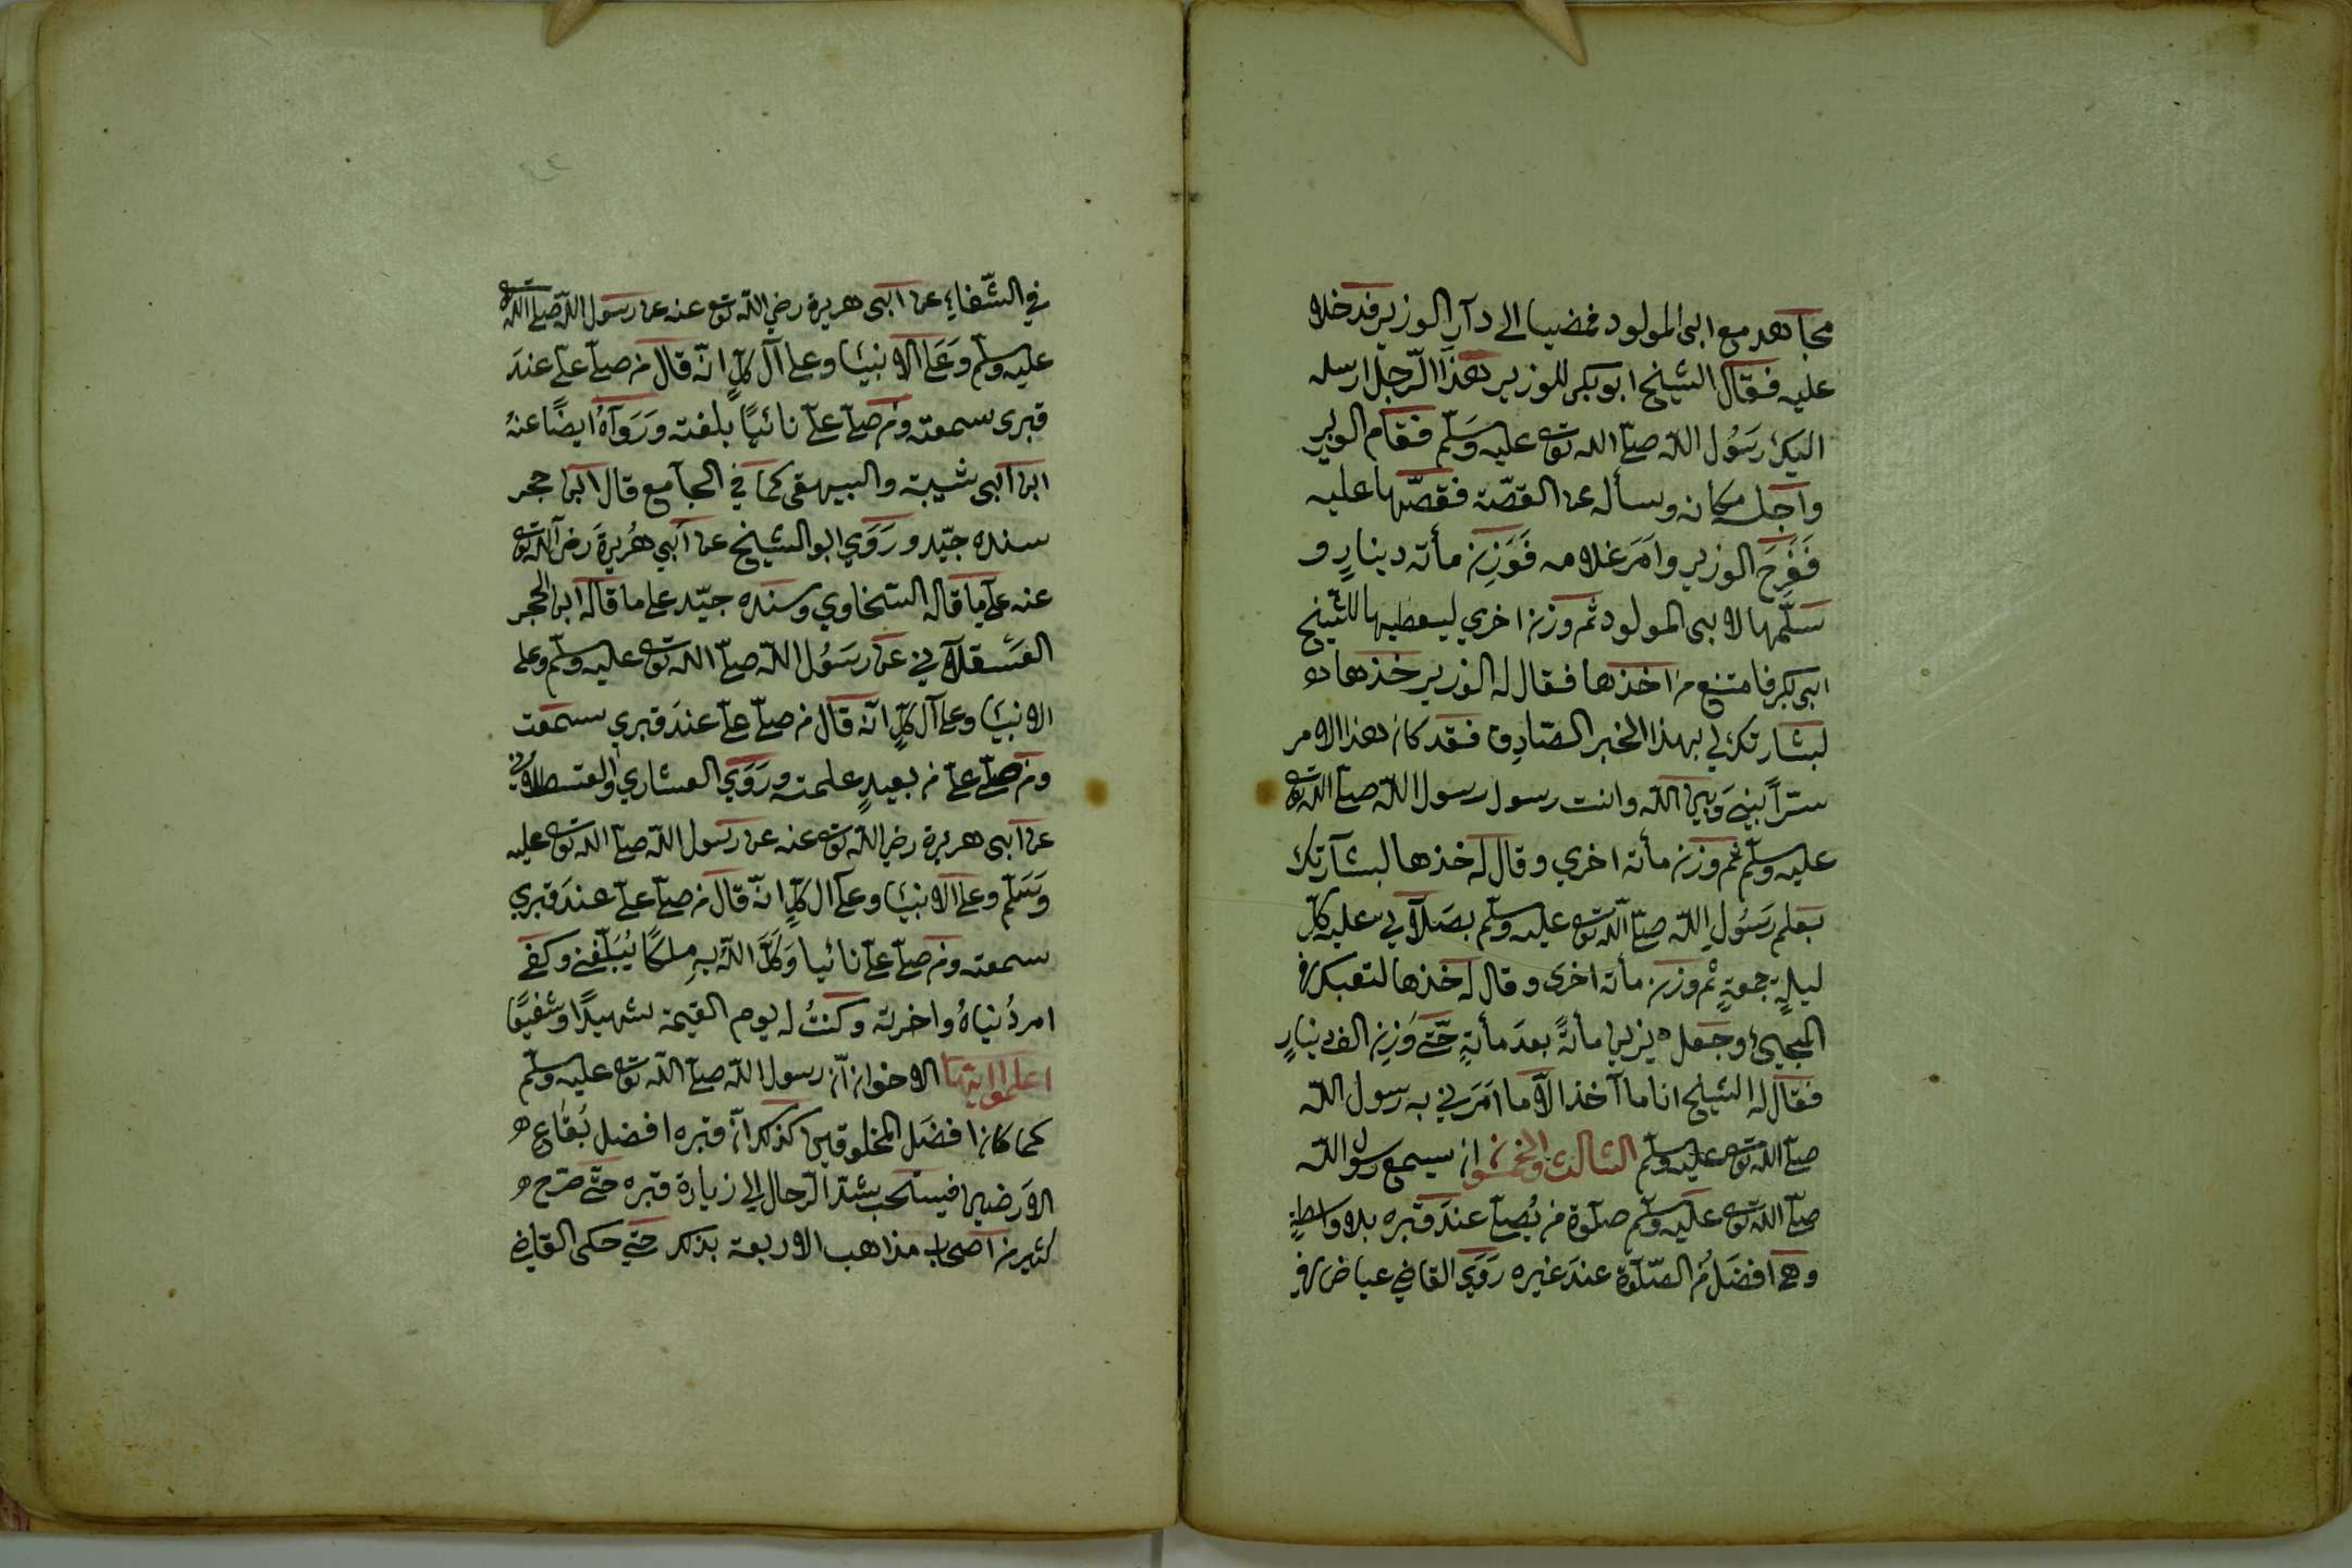 مجاهد مع ابى المولود فمضيا الى دار الوزير فدخلا
عليه فقال الشيخ ابو بكر للوزير هذا الرّجل ارسله
اليك رَسُول اللّه صلّى الله تع عليه وسَلّم فقام الوزير
واجلسه مكانه وسأله عن القصّة فقصّها عليه
فَفَرِحَ الوزير وامَرَ غلامه فَوَزن مأته دينارٍ و
سَلّمها لابى المولود ثم وزن اخري ليعطيها للشّيخ
ابى بكر فامتنع من اخذها فقال له الوزير خذها
لبشارتك لي بهذا الخبر الصّادِق فقد كان هذا الامر
سرّاً بيني وَبين اللّه وانت رسول رسول اللّه صلّى اللّه تع
عليه وسلّم ثم وزن مأته اخري وقال له خذها لبشارتك
بعلم رَسُولِ اللّه صلّى اللّه تع عليه وسلّم بصَلاتي عليه كلّ
ليلةِ جمعةٍ ثم وزن مأته اخرى وقال له خذها لتعبك في
المجيئ وجعل يزن مأتةً بعدَ مأتةٍ حتّى وَزن الف دينارٍ
فقال له الشيخ انا ما آخذ الاّ ما امَرَني به رسول اللّه
صلّى اللّه تع عليه وسلّم الثالث والخمسون ان سيمع رسول اللّه
صلّى اللّه تع عليه وسلّم صلوة من يُصلّى عندَ قبره بلا واسطةٍ
وهى افضَل من الصّلوة عندَ غيره رَوَى القاضي عياض في
في الشّفاءِ عن ابى هريرة رضي اللّه تع عنه عن رسول اللّه صلّى اللّه تع
عليه وسلّم وَعَلى الانبيَا وعلى آل كلٍّ انّه قال من صلّى علىّ عندَ
قبرى سمعته ومن صلّى علىّ نائيًا بلغته وَرَوَاهُ ايضًا عنهُ
ابن ابى شيبة والبيهقى كما في الجامع قال ابن حجر
سنده جيّد ورَوَي ابو الشيخ عن أبي هُريرَة رضى اللّه تع
عنه على ما قاله السّخاوي وسَنده جيّد على ما قاله ابن الحجر
العَسْقلاني عن رسَوُل اللّه صلّى اللّه تع عليه وسلّم وعلى
الانبيَا وعلى آل كلٍّ انّه قال من صلّى علىّ عندَ قبري سمعت
ومن صلّى علىّ من بعيدٍ علمته ورَوَي العشاري والقسطلاني
عن ابى هريرة رضي اللّه تع عنه عن رسول اللّه صلّى اللّه تع عليه
وَسَلّم وعلى الانبيَا وعلى ال كلٍّ انّه قال من صلّى علىّ عندَ قبري
سمعته ومن صلّى علىّ نائيا وَكلَّ اللّه بهِ مِلكًا يُبَلّغني وكفى
امر دُنياهُ واخرته وكنتُ له يوم القيمة شهيدًا وشفيعًا
اعلموا ايّها الاخوان انّ رسول اللّه صلّى اللّه تع عليه وسلّم
كما كان افضَل المخلوقين كذلك انّ قبره افضل بُقاع
الاَرضين فيستحب شدّ الرّحال الى زيارة قبره حتّى صرّح
كثير من اصحاب مذاهب الاربعة بذلك حتّى حكى القاضي